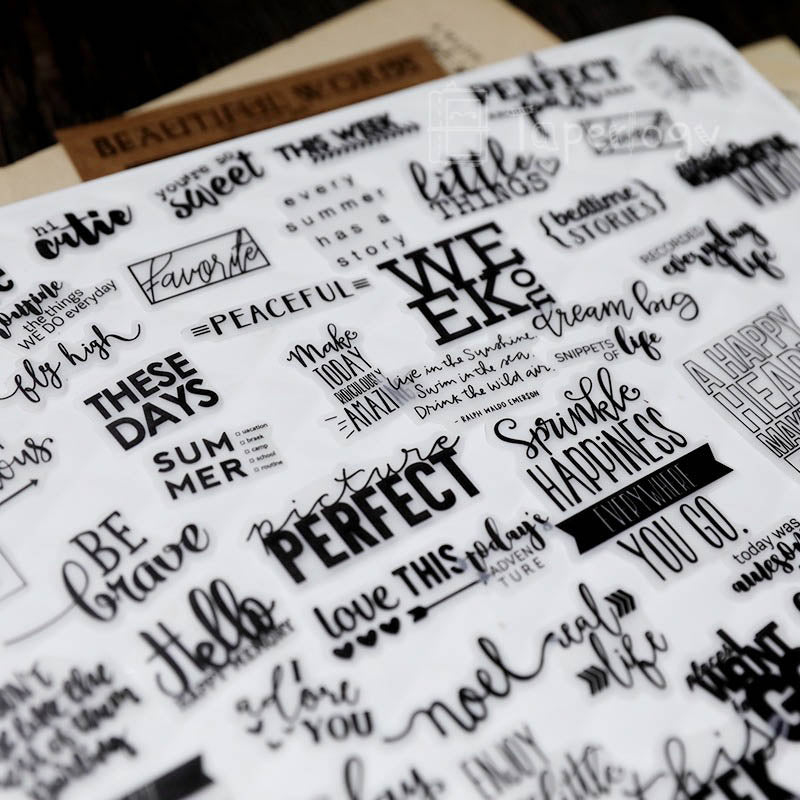 BEAUTIFUL WORDS
PERFECT
Taperlogy
THIS WEEK
you're so
sweet
hi
cutie
every
summer
has a
story
little
THINGS
{bedtime
STORIES}
RECORDED
everyday
life
favorite
the things
WE DO everyday
PEACEFUL
WE
EK
fly high
THESE
DAYS
Make
TODAY
RIDICULOUSLY
AMAZING
live in the Sunshine
Swim in the sea.
Drink the wild air.
- RALPH WALDO EMERSON
dream big
SNIPPETS
OF life
A HAPPY
SUM
MER
vacation
break
camp
school
routine
picture
PERFECT
Sprinkle
HAPPINESS
EVERYWHERE
YOU GO.
BE
brave
love THIS
today's
ADVEN
TURE
today was
awesome
Hello
real
life
noel
I love
YOU
WANT
ENJOY
little
this